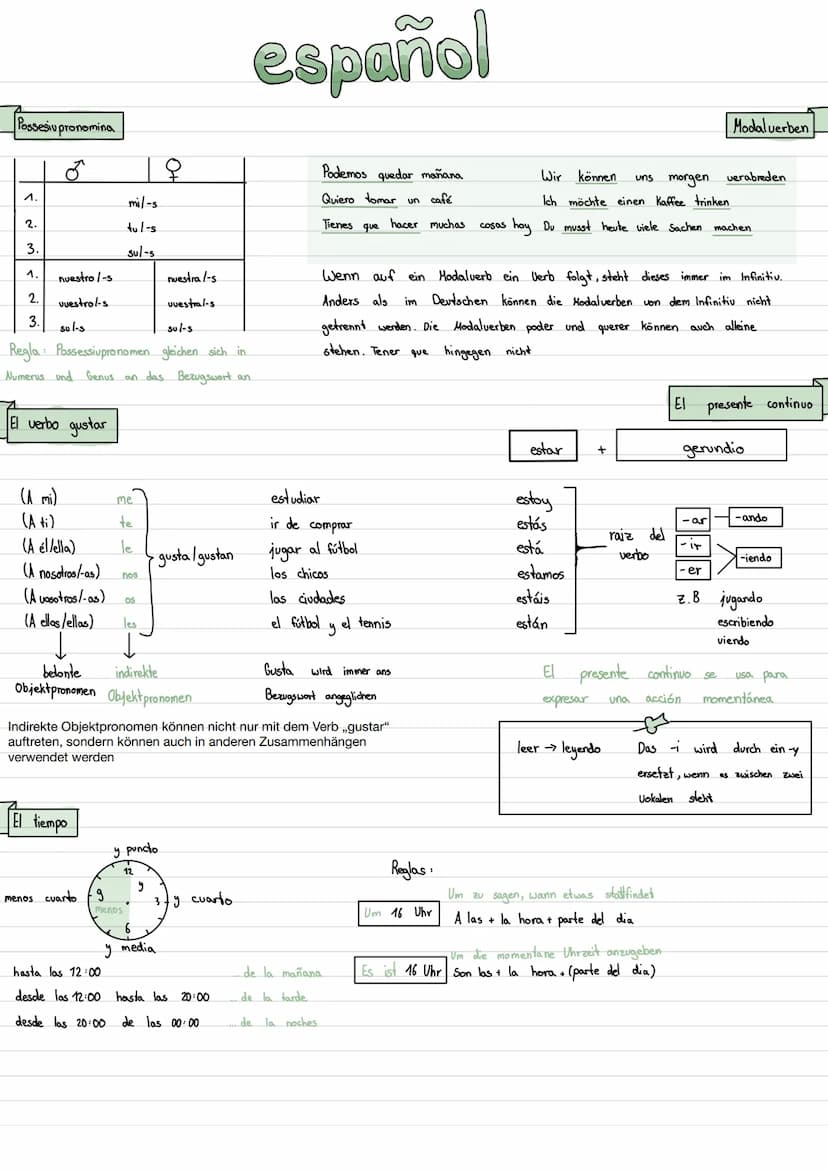 español
Possesivpronomina
♂ ♀
1. mi/-s
2. tu/-s
3. su/-s
1. nuestro/-s nuestra/-s
2. vuestro/-s vuestra/-s
3. su/-s su/-s
Regla: Possessivpronomen gleichen sich in
Numerus und Genus an das Bezugswort an
Modalverben
Podemos quedar mañana Wir können uns morgen verabreden
Quiero tomar un café Ich möchte einen Kaffee trinken
Tienes que hacer muchas cosas hoy Du musst heute viele Sachen machen
Wenn auf ein Modalverb ein Verb folgt, steht dieses immer im Infinitiv.
Anders als im Deutschen können die Modalverben von dem Infinitiv nicht
getrennt werden. Die Modalverben poder und querer können auch alleine
stehen. Tener que hingegen nicht
El verbo gustar
(A mi) me
(A ti) te
(A él/ella) le
(A nosotros/-as) nos
(A vosotros/-as) os
(A ellos/ellas) les
gusta/gustan
estudiar
ir de comprar
jugar al fútbol
los chicos
las ciudades
el fútbol y el tennis
belonte
Objektpronomen
indirekte
Objektpronomen
Gusta wird immer ans
Bezugswort angeglichen
Indirekte Objektpronomen können nicht nur mit dem Verb „gustar“
auftreten, sondern können auch in anderen Zusammenhängen
verwendet werden
El presente continuo
estar + gerundio
estoy
estás
está
estamos
estáis
están
raiz del
verbo
-ar -ando
-ir
-er
-iendo
z.B jugando
escribiendo
viendo
El presente continuo se usa para
expresar una acción momentánea
leer → leyendo
Das -i wird durch ein -y
ersetzt, wenn es zwischen zwei
Vokalen steht
El tiempo
y puncto
12
y
menos cuarto
9
menos
3
y cuarto
6
y media
hasta las 12:00 ...de la mañana
desde las 12:00 hasta las 20:00 ...de la tarde
desde las 20:00 de las 00:00 ...de la noches
Reglas:
Um 16 Uhr
Um zu sagen, wann etwas stattfindet
A las + la hora + parte del dia
Es ist 16 Uhr
Um die momentane Uhrzeit anzugeben
Son las + la hora + (parte del dia)